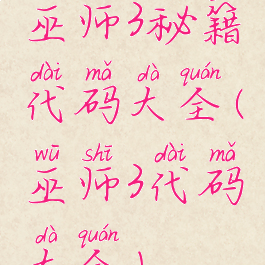 巫师3秘籍
dài mǎ dà quán
代码大全(
wū shī dài mǎ
巫师3代码
dà quán
大全)